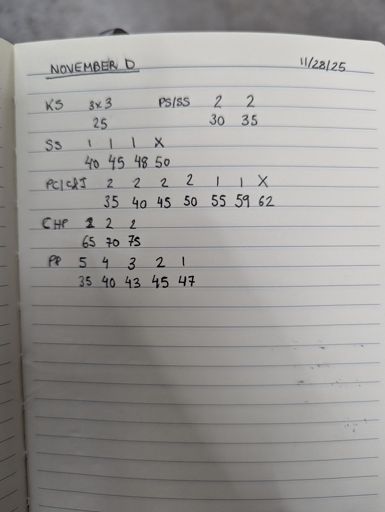 NOVEMBER D 11/28/25
KS 3x3 PS/SS 2 2
25 30 35
SS 1 1 1 X
40 45 48 50
PC/C&J 2 2 2 2 1 1 X
35 40 45 50 55 59 62
CHP 2 2 2
65 70 75
PP 5 4 3 2 1
35 40 43 45 47